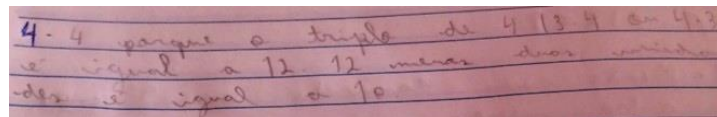 4 - 4 porque o triplo de 4 (3.4 ou 4.3
é igual a 12. 12 menos duas unida
-des é igual a 10